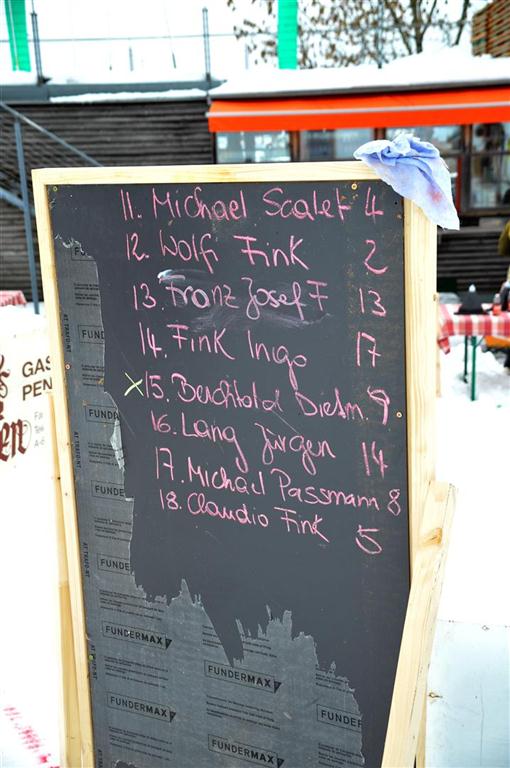 11. Michael Scalet 4
12. Wolfi Fink 2
13. Franz Josef F 13
14. Fink Ingo 17
x 15. Berchtold Dietm 9
16. Lang Jürgen 14
17. Michael Passmann 8
18. Claudio Fink 5
GAS
PEN
FUNDER
FUNDE
FUNDE
FUNDE
FUNDERMAX
FUNDERMAX
FUNDERMAX
FUNDER
FUNDERMAX